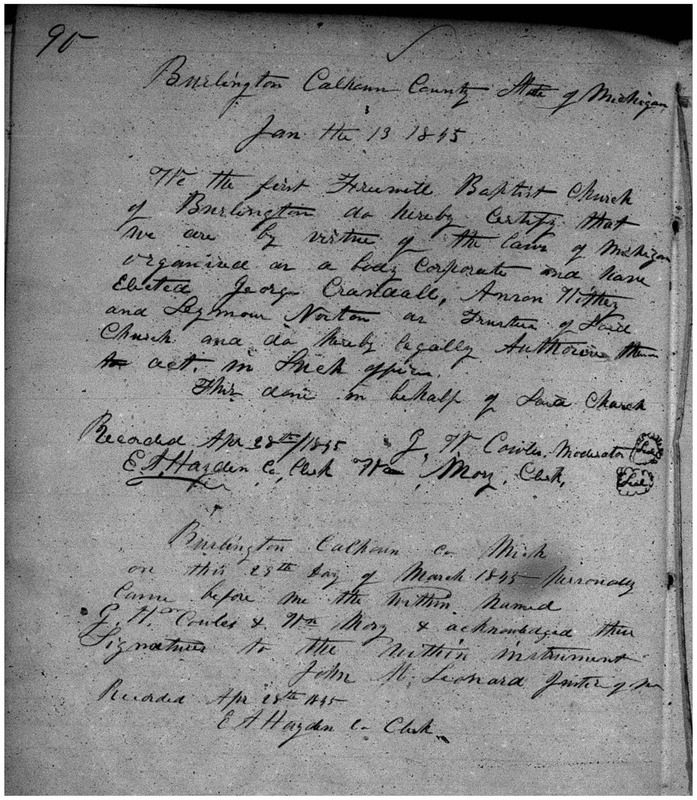 90
Burlington Calhoun County State of Michigan
Jan the 13 1845
We the first Freewill Baptist Church
of Burlington do hereby Certify that
we are by virtue of the laws of Michigan
organised as a body Corporate and have
Elected George Crandall, Anson
and Seymour Norton as Trustees of Said
Church and do hereby legally Authorise them
to act. in Such office.
This done in behalf of Said Church
Recorded Apr 28th/1845 G. W Cowles, Moderator Seal
E A Hayden Co, Clerk Wm Mory, Clerk, Seal
Burlington Calhoun Co Mich
on this 25th day of March 1845 Personally
Came before me the within Named
G. W. Cowles & Wm Mory & acknowledged their
Signatures to the within instrument
John M. Leonard
Recorded Apr 28th 1845
E A Hayden Co Clerk